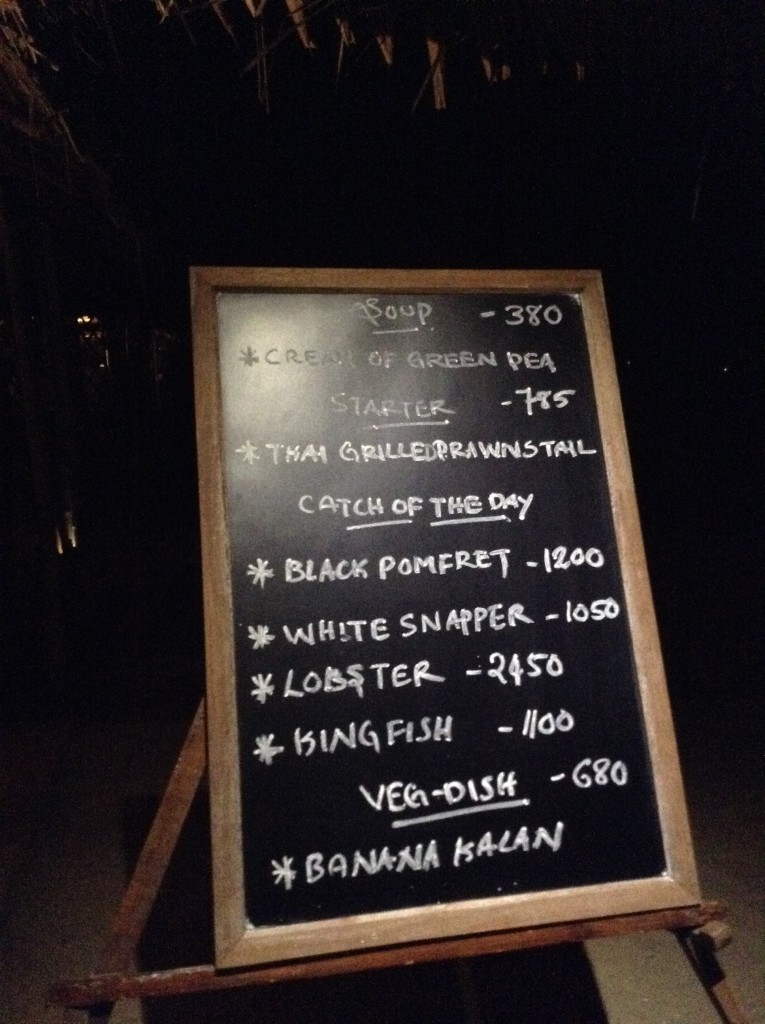 SOUP - 380
* CREAM OF GREEN PEA
STARTER - 785
* THAI GRILLED PRAWNS TAIL
CATCH OF THE DAY
* BLACK POMFRET - 1200
* WHITE SNAPPER - 1050
* LOBSTER - 2450
* KING FISH - 1100
VEG-DISH - 680
* BANANA KALAN